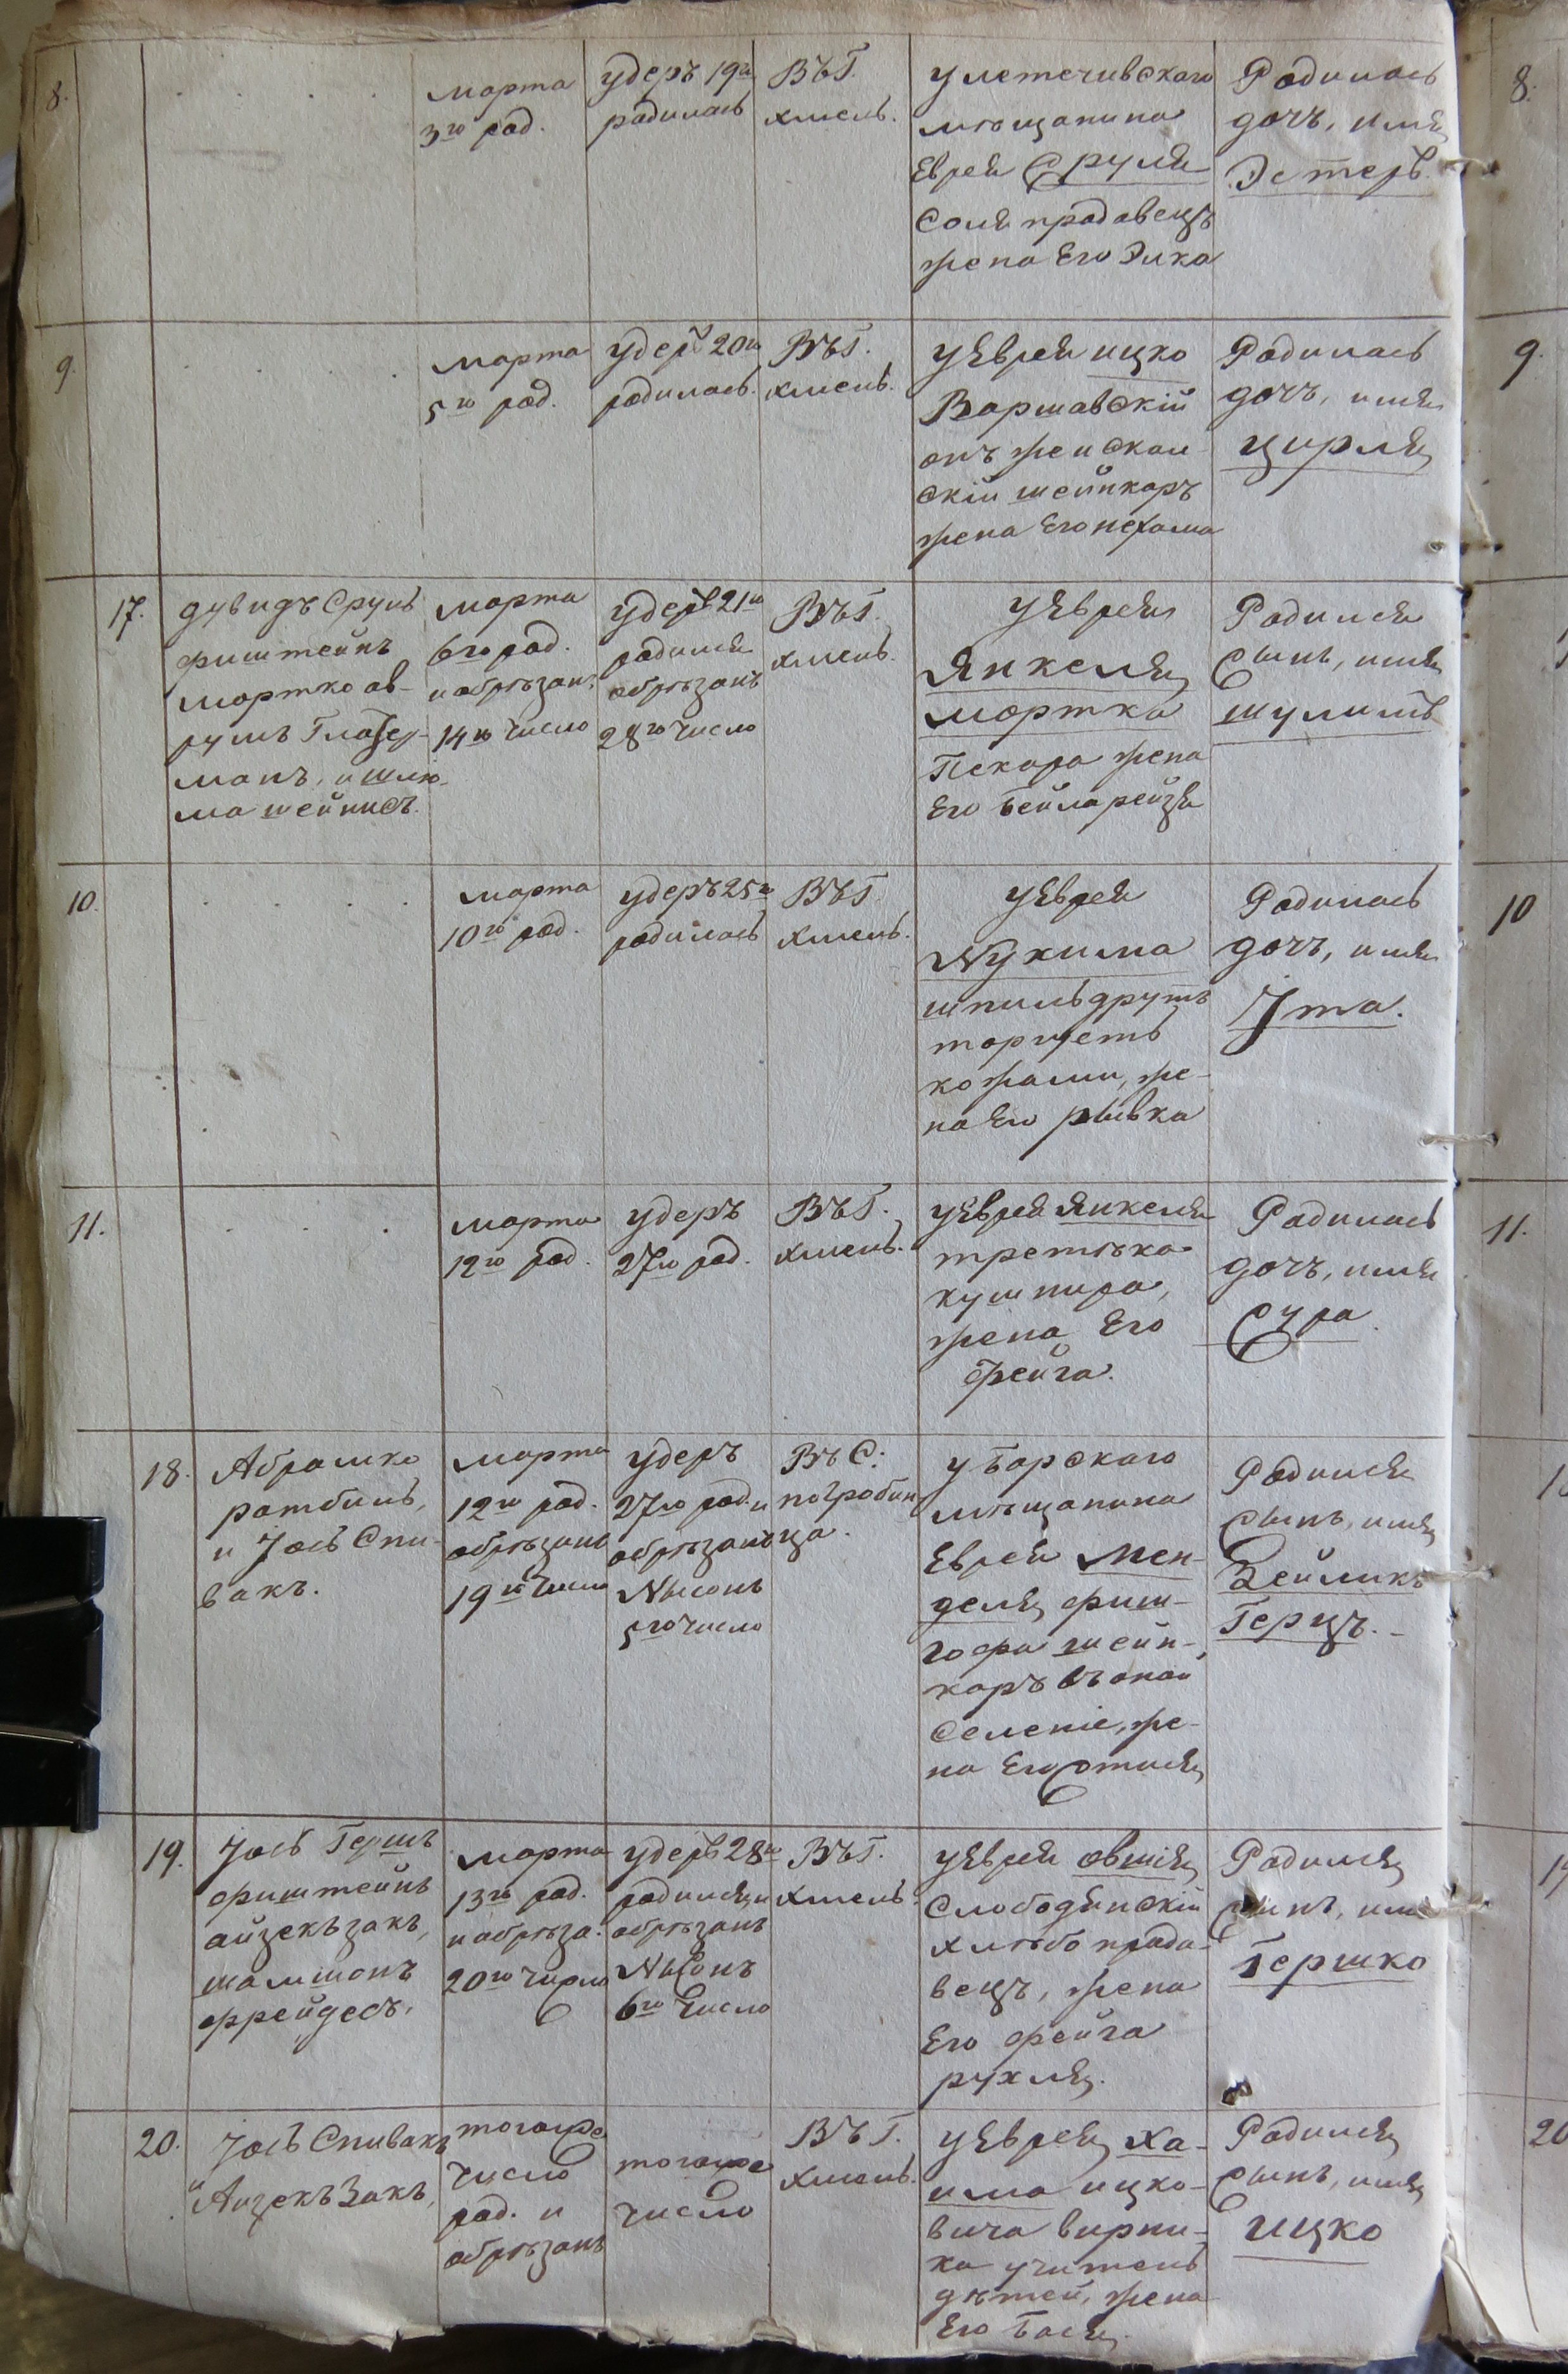 8.
марта
3го род.
удеръ 19го
родилась
Въ Г.
хмель.
у летечивского
мѣщанина
Еврея Сруля
Соля продавецъ
жена Его Элка
Родилась
дочъ, имя
Эстеръ.
9.
марта
5го род.
удеръ 20го
родилась.
Въ Г.
хмель.
у Еврея ицко
Варшавскій
онъ же искал-
скій шейнкаръ
жена Его нехама
Родилась
дочъ, имя
цирля
17.
дувидъ Сруль
фиштейнъ
мортко ав-
румъ Глозер-
манъ, и шлю-
ма шейнисъ.
марта
6го род.
и обрѣзан.
14го число
удеръ 21го
родился
обрѣзанъ
28го число
Въ Г.
хмель.
у Еврея
Янкеля
мортка
Пекара жена
Его бейла рейзя
Родился
Сынъ, имя
шулимъ
10.
марта
10го род.
удеръ 25го
родилась
Въ Г.
хмель.
у Еврея
Нухима
шпильдрутъ
торгуетъ
кожами, же-
на Его рывка
Родилась
дочъ, имя
Ита.
11.
марта
12го род.
удеръ
27го род.
Въ Г.
хмель.
у Еврея Янкеля
третяка
кушнира,
жена Его
фейга.
Родилась
дочъ, имя
Сура
18.
Абрамко
ротбинъ,
и Іось Спи-
вакъ.
марта
12го род.
обрѣзанъ
19го число
удеръ
27го род. и
обрѣзанъ
Нысонъ
5го число
Въ С.
погробин
ца.
у барского
мѣщанина
Еврея Мен-
деля фиш-
гофа шейн-
каръ въ оной
Селеніе, же-
на Его Этля
Родился
Сынъ, имя
Зейликъ
Герцъ.
19.
Іось Гершъ
фиштейнъ
айзекъ закъ,
шамшонъ
фрейдесъ.
марта
13го род.
и обрѣза.
20го число
удеръ 28го
родился и
обрѣзанъ
Нысонъ
6го число
Въ Г.
хмель
у Еврея овшія
Слободянскій
хлѣбо прода-
вецъ, жена
Его фейга
рухля.
Родился
Сынъ, имя
Гершко
20.
Іось Спивакъ
и Айзекъ Закъ,
тогоже
число
род. и
обрѣзанъ
тогоже
число
Въ Г.
хмель.
у Еврея ха-
има ицко-
вича вирни-
ка учитель
дѣтей, жена
Его бася.
Родился
Сынъ, имя
ицко
8.
9.
10
11.
20